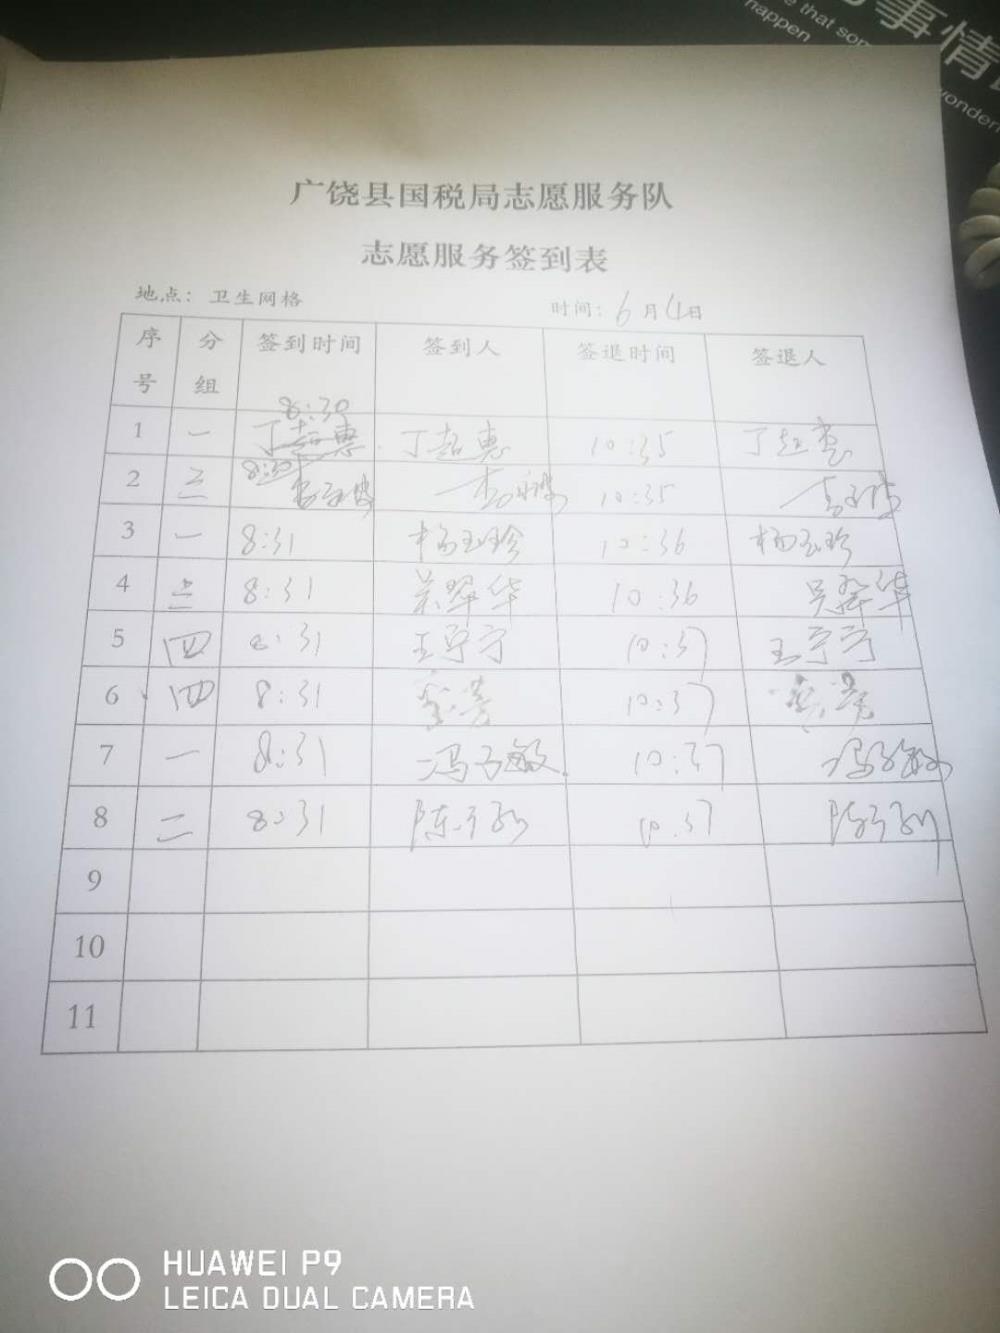 事情
that som
happen
wonder
广饶县国税局志愿服务队
志愿服务签到表
地点：卫生网格 时间：6月4日
序号 分组 签到时间 签到人 签退时间 签退人
8:30
1 一 丁超惠 丁超惠 10:35 丁超惠
2 三 8:30 10:35
3 一 8:31 杨玉珍 10:36 杨玉珍
4 三 8:31 吴翠华 10:36 吴翠华
5 四 8:31 王宁宁 10:37 王宁宁
6 四 8:31 10:37
7 一 8:31 冯子敏 10:37 冯子敏
8 二 8:31 10:37
9
10
11
HUAWEI P9
LEICA DUAL CAMERA